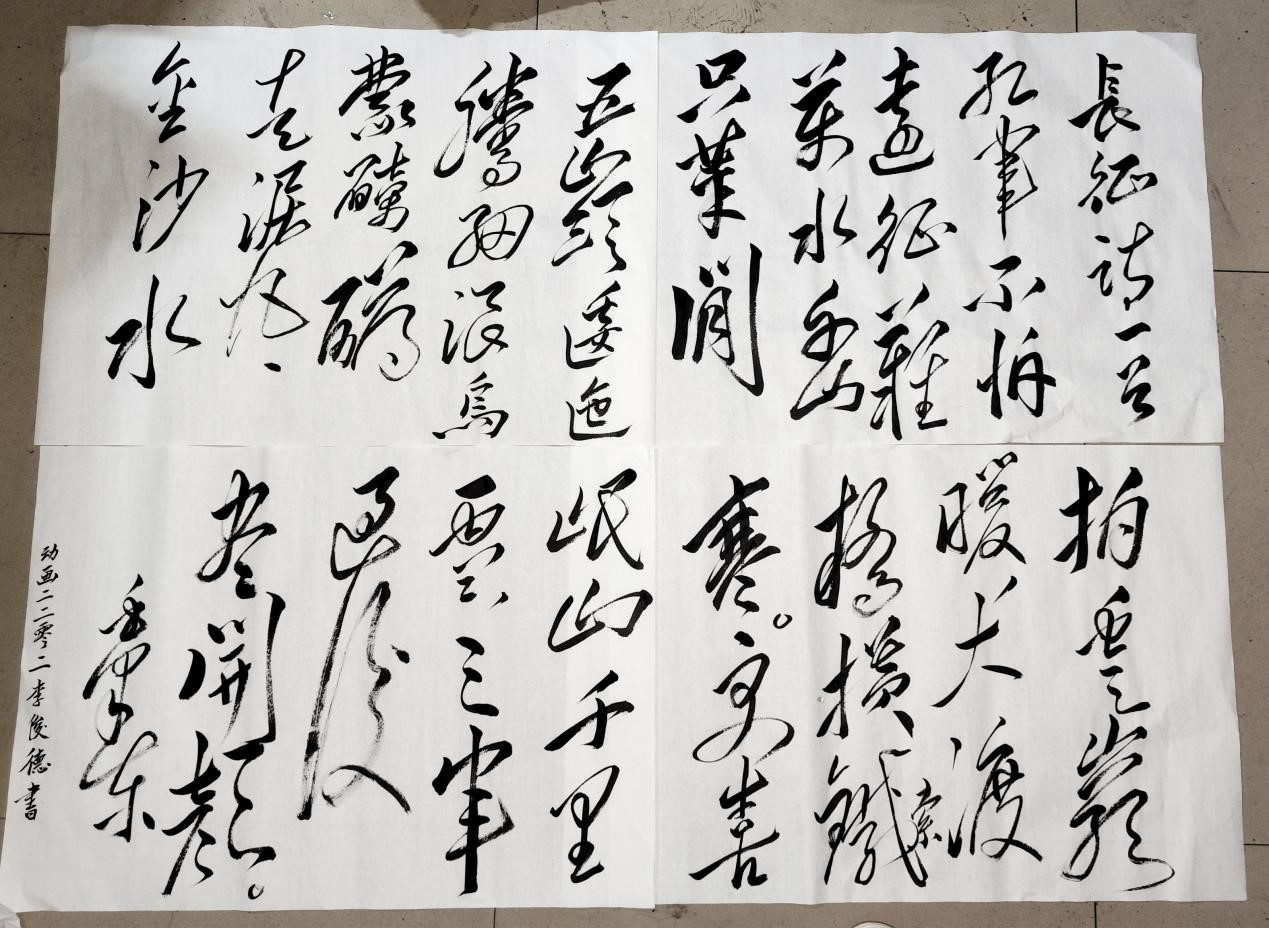 長征詩一首
紅軍不怕
遠征難
萬水千山
只等閒
五嶺逶迤
騰細浪烏
蒙磅礴
走泥丸
金沙水
拍雲巖
暖大渡
橋橫鐵索
寒。更喜
岷山千里
雪三軍
過後
盡開顏。
毛澤東
动画二二零二李俊德書